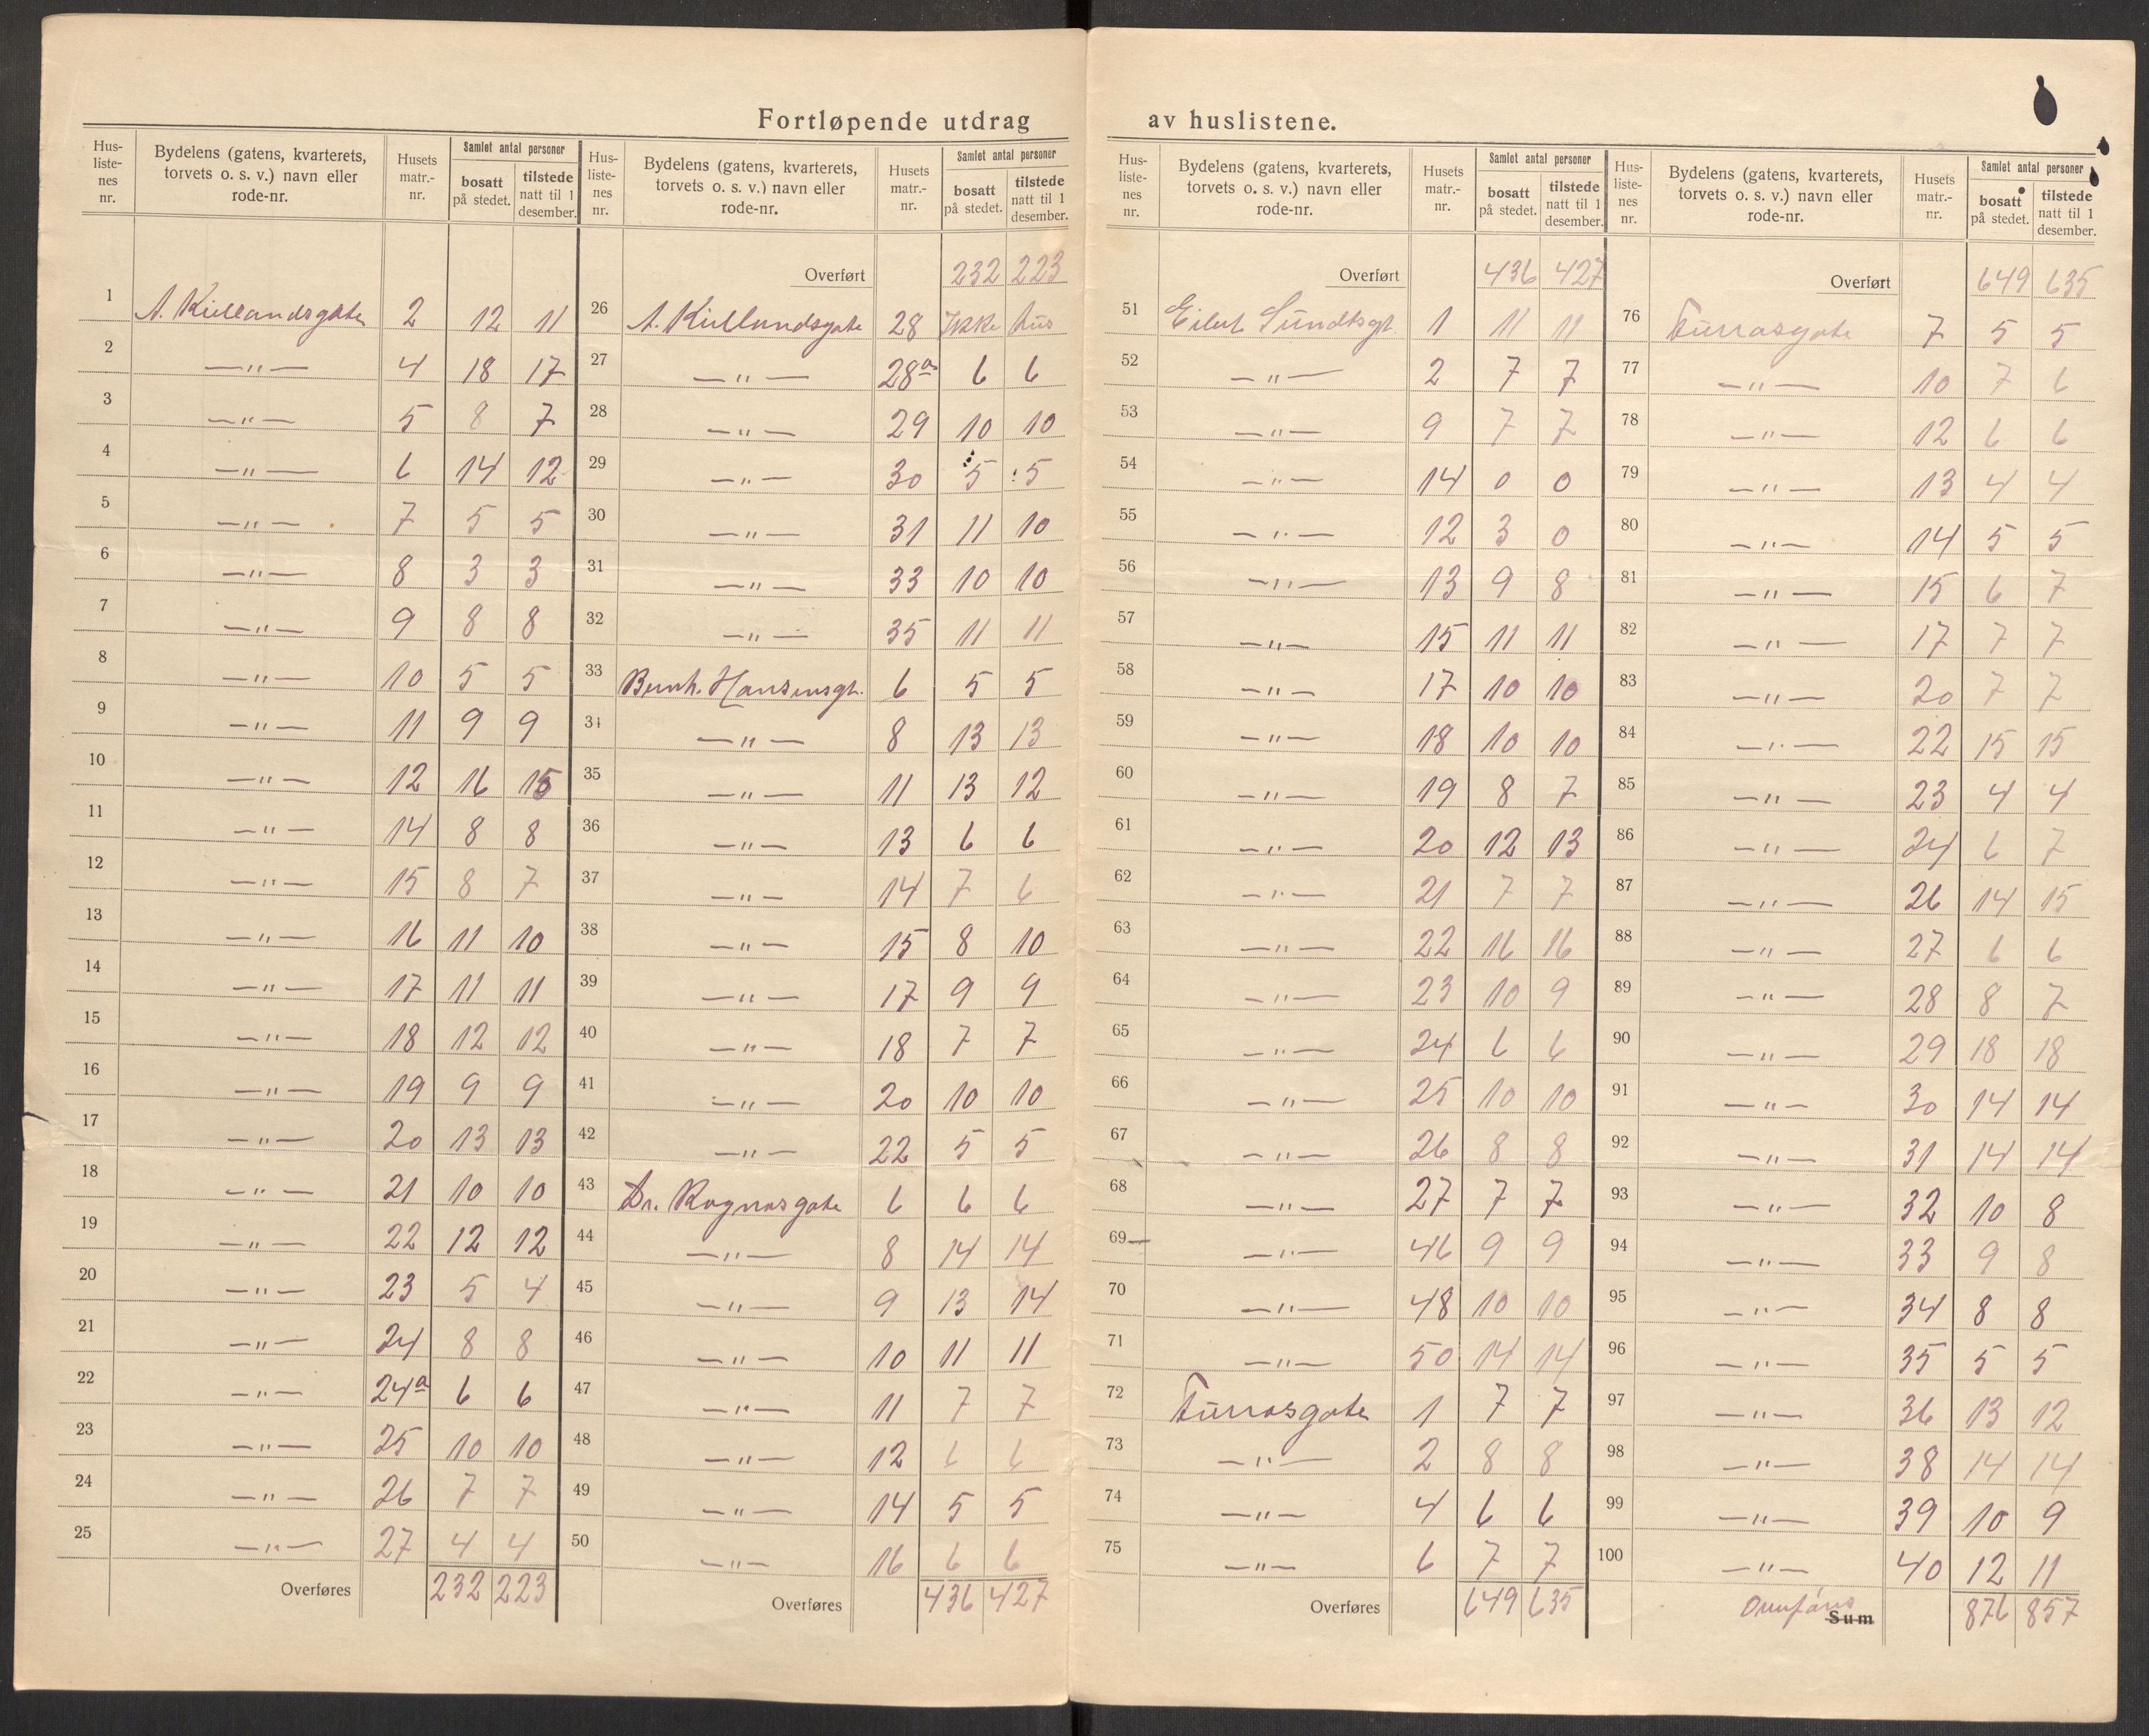 Fortløpende utdrag av huslistene.
Hus-liste-nes nr. | Bydelens (gatens, kvarterets, torvets o. s. v.) navn eller rode-nr. | Husets matr.-nr. | Samlet antal personer bosatt på stedet. | tilstede natt til 1 desember.
1 A. Kiellandsgate 2 12 11
2 —"— 4 18 17
3 —"— 5 8 7
4 —"— 6 14 12
5 —"— 7 5 5
6 —"— 8 3 3
7 —"— 9 8 8
8 —"— 10 5 5
9 —"— 11 9 9
10 —"— 12 16 15
11 —"— 14 8 8
12 —"— 15 8 7
13 —"— 16 11 10
14 —"— 17 11 11
15 —"— 18 12 12
16 —"— 19 9 9
17 —"— 20 13 13
18 —"— 21 10 10
19 —"— 22 12 12
20 —"— 23 5 4
21 —"— 24 8 8
22 —"— 24a 6 6
23 —"— 25 10 10
24 —"— 26 7 7
25 —"— 27 4 4
Overføres 232 223
Hus-liste-nes nr. | Bydelens (gatens, kvarterets, torvets o. s. v.) navn eller rode-nr. | Husets matr.-nr. | Samlet antal personer bosatt på stedet. | tilstede natt til 1 desember.
Overført 232 223
26 A. Kiellandsgate 28 Ikke hus
27 —"— 28a 6 6
28 —"— 29 10 10
29 —"— 30 5 5
30 —"— 31 11 10
31 —"— 33 10 10
32 —"— 35 11 11
33 Bernh. Hansensgt. 6 5 5
34 —"— 8 13 13
35 —"— 11 13 12
36 —"— 13 6 6
37 —"— 14 7 6
38 —"— 15 8 10
39 —"— 17 9 9
40 —"— 18 7 7
41 —"— 20 10 10
42 —"— 22 5 5
43 Dr. Rognasgate 6 6 6
44 —"— 8 14 14
45 —"— 9 13 14
46 —"— 10 11 11
47 —"— 11 7 7
48 —"— 12 6 6
49 —"— 14 5 5
50 —"— 16 6 6
Overføres 436 427
Hus-liste-nes nr. | Bydelens (gatens, kvarterets, torvets o. s. v.) navn eller rode-nr. | Husets matr.-nr. | Samlet antal personer bosatt på stedet. | tilstede natt til 1 desember.
Overført 436 427
51 Eilert Sundtsgt. 1 11 11
52 —"— 2 7 7
53 —"— 9 7 7
54 —"— 14 0 0
55 —"— 12 3 0
56 —"— 13 9 8
57 —"— 15 11 11
58 —"— 17 10 10
59 —"— 18 10 10
60 —"— 19 8 7
61 —"— 20 12 13
62 —"— 21 7 7
63 —"— 22 16 16
64 —"— 23 10 9
65 —"— 24 6 6
66 —"— 25 10 10
67 —"— 26 8 8
68 —"— 27 7 7
69 —"— 46 9 9
70 —"— 48 10 10
71 —"— 50 14 14
72 Furrasgate 1 7 7
73 —"— 2 8 8
74 —"— 4 6 6
75 —"— 6 7 7
Overføres 649 635
Hus-liste-nes nr. | Bydelens (gatens, kvarterets, torvets o. s. v.) navn eller rode-nr. | Husets matr.-nr. | Samlet antal personer bosatt på stedet. | tilstede natt til 1 desember.
Overført 649 635
76 Furrasgate 7 5 5
77 —"— 10 7 6
78 —"— 12 6 6
79 —"— 13 4 4
80 —"— 14 5 5
81 —"— 15 6 7
82 —"— 17 7 7
83 —"— 20 7 7
84 —"— 22 15 15
85 —"— 23 4 4
86 —"— 24 6 7
87 —"— 26 14 15
88 —"— 27 6 6
89 —"— 28 8 7
90 —"— 29 18 18
91 —"— 30 14 14
92 —"— 31 14 14
93 —"— 32 10 8
94 —"— 33 9 8
95 —"— 34 8 8
96 —"— 35 5 5
97 —"— 36 13 12
98 —"— 38 14 14
99 —"— 39 10 9
100 —"— 40 12 11
Sum 876 857